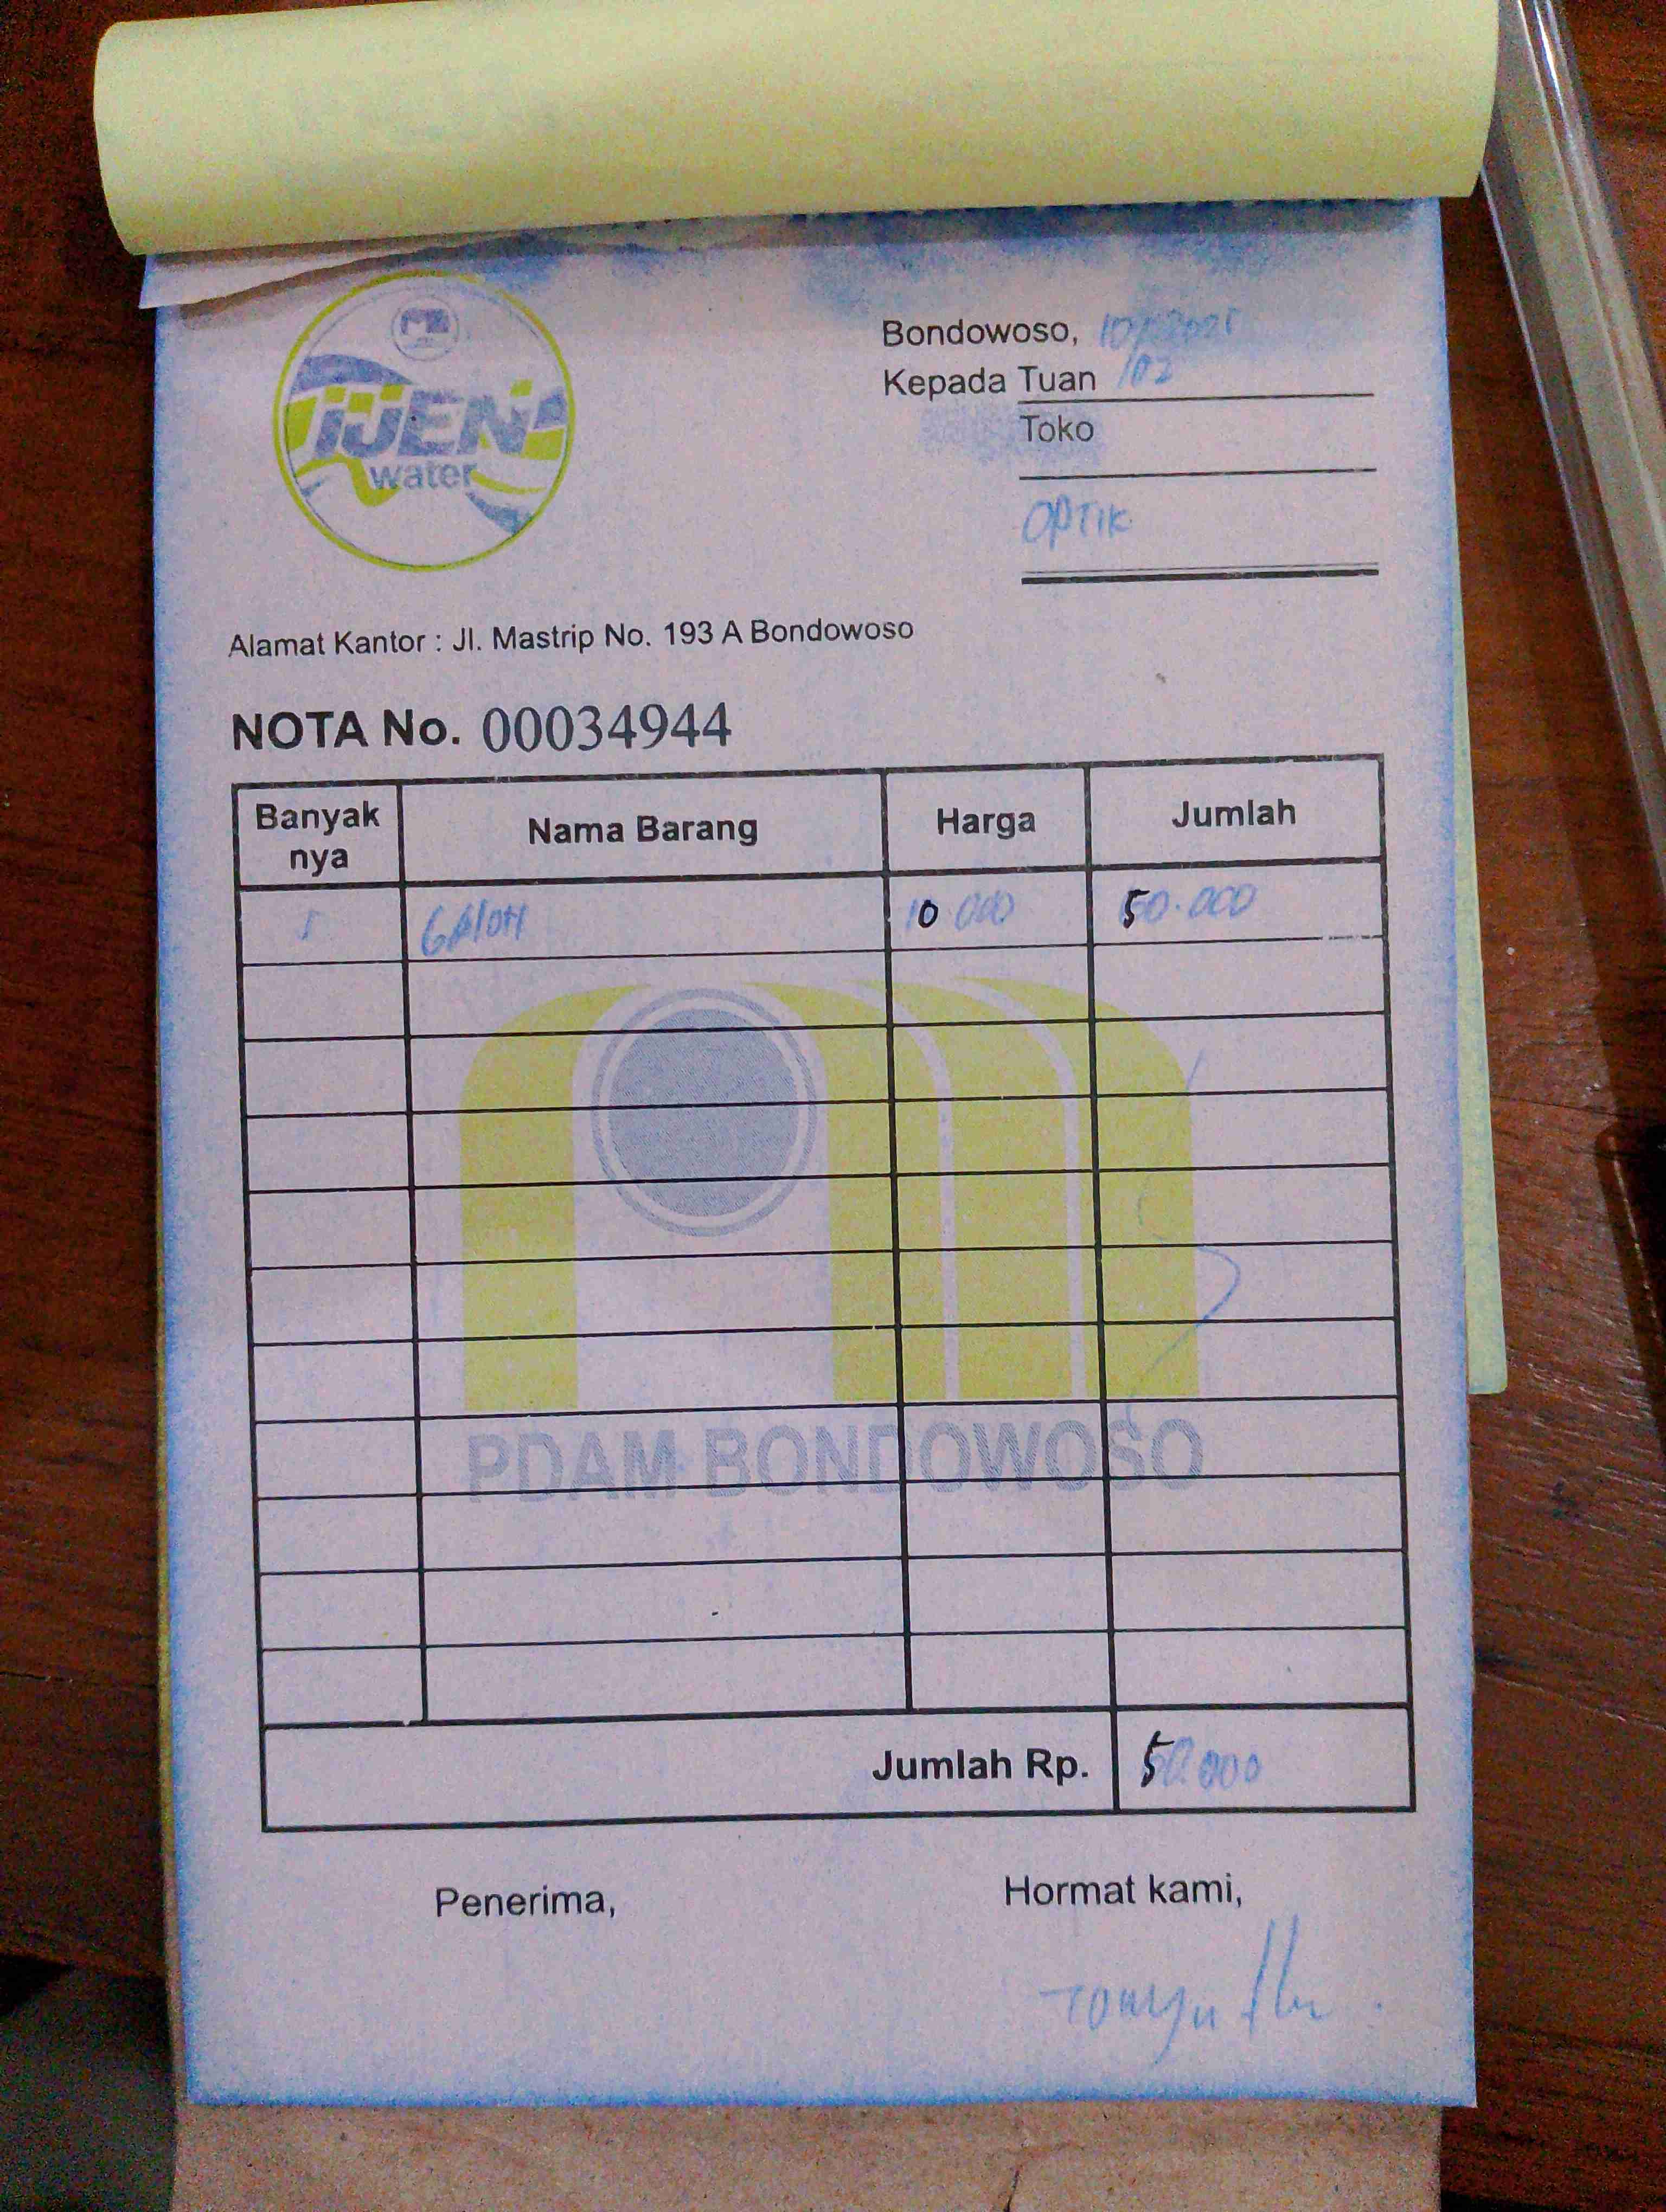 IJEN
water
Bondowoso, 10/2021
/02
Kepada Tuan
Toko
OPTIK
Alamat Kantor : Jl. Mastrip No. 193 A Bondowoso
NOTA No. 00034944
Banyak nya Nama Barang Harga Jumlah
5 GALON 10.000 50.000
PDAM BONDOWOSO
Jumlah Rp. 50.000
Penerima, Hormat kami,